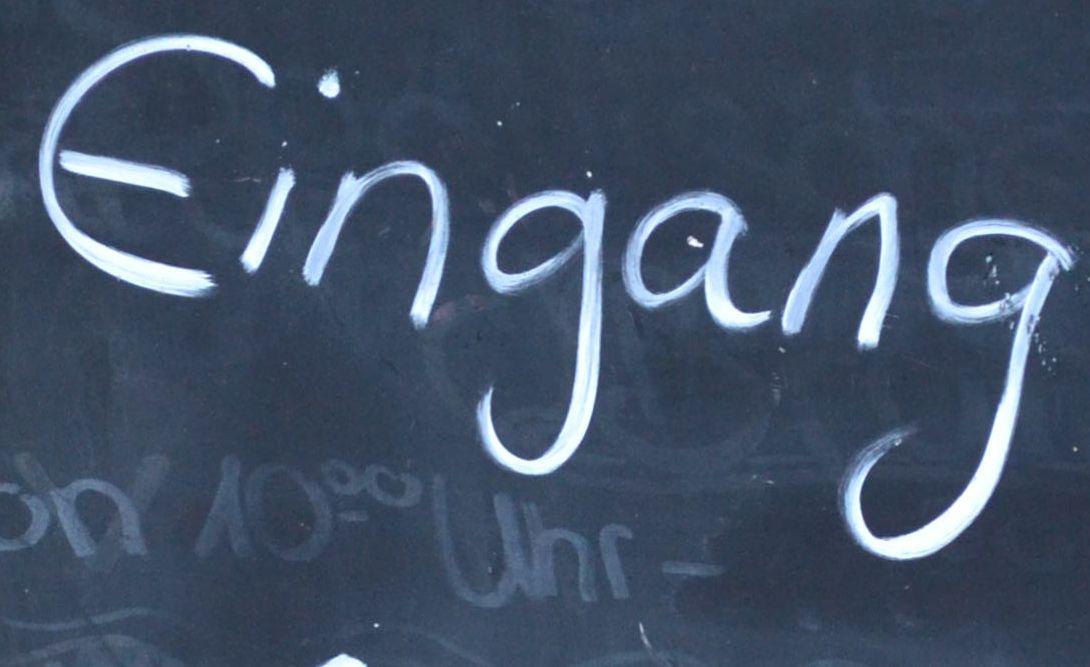 Eingang
10⁰⁰ Uhr –